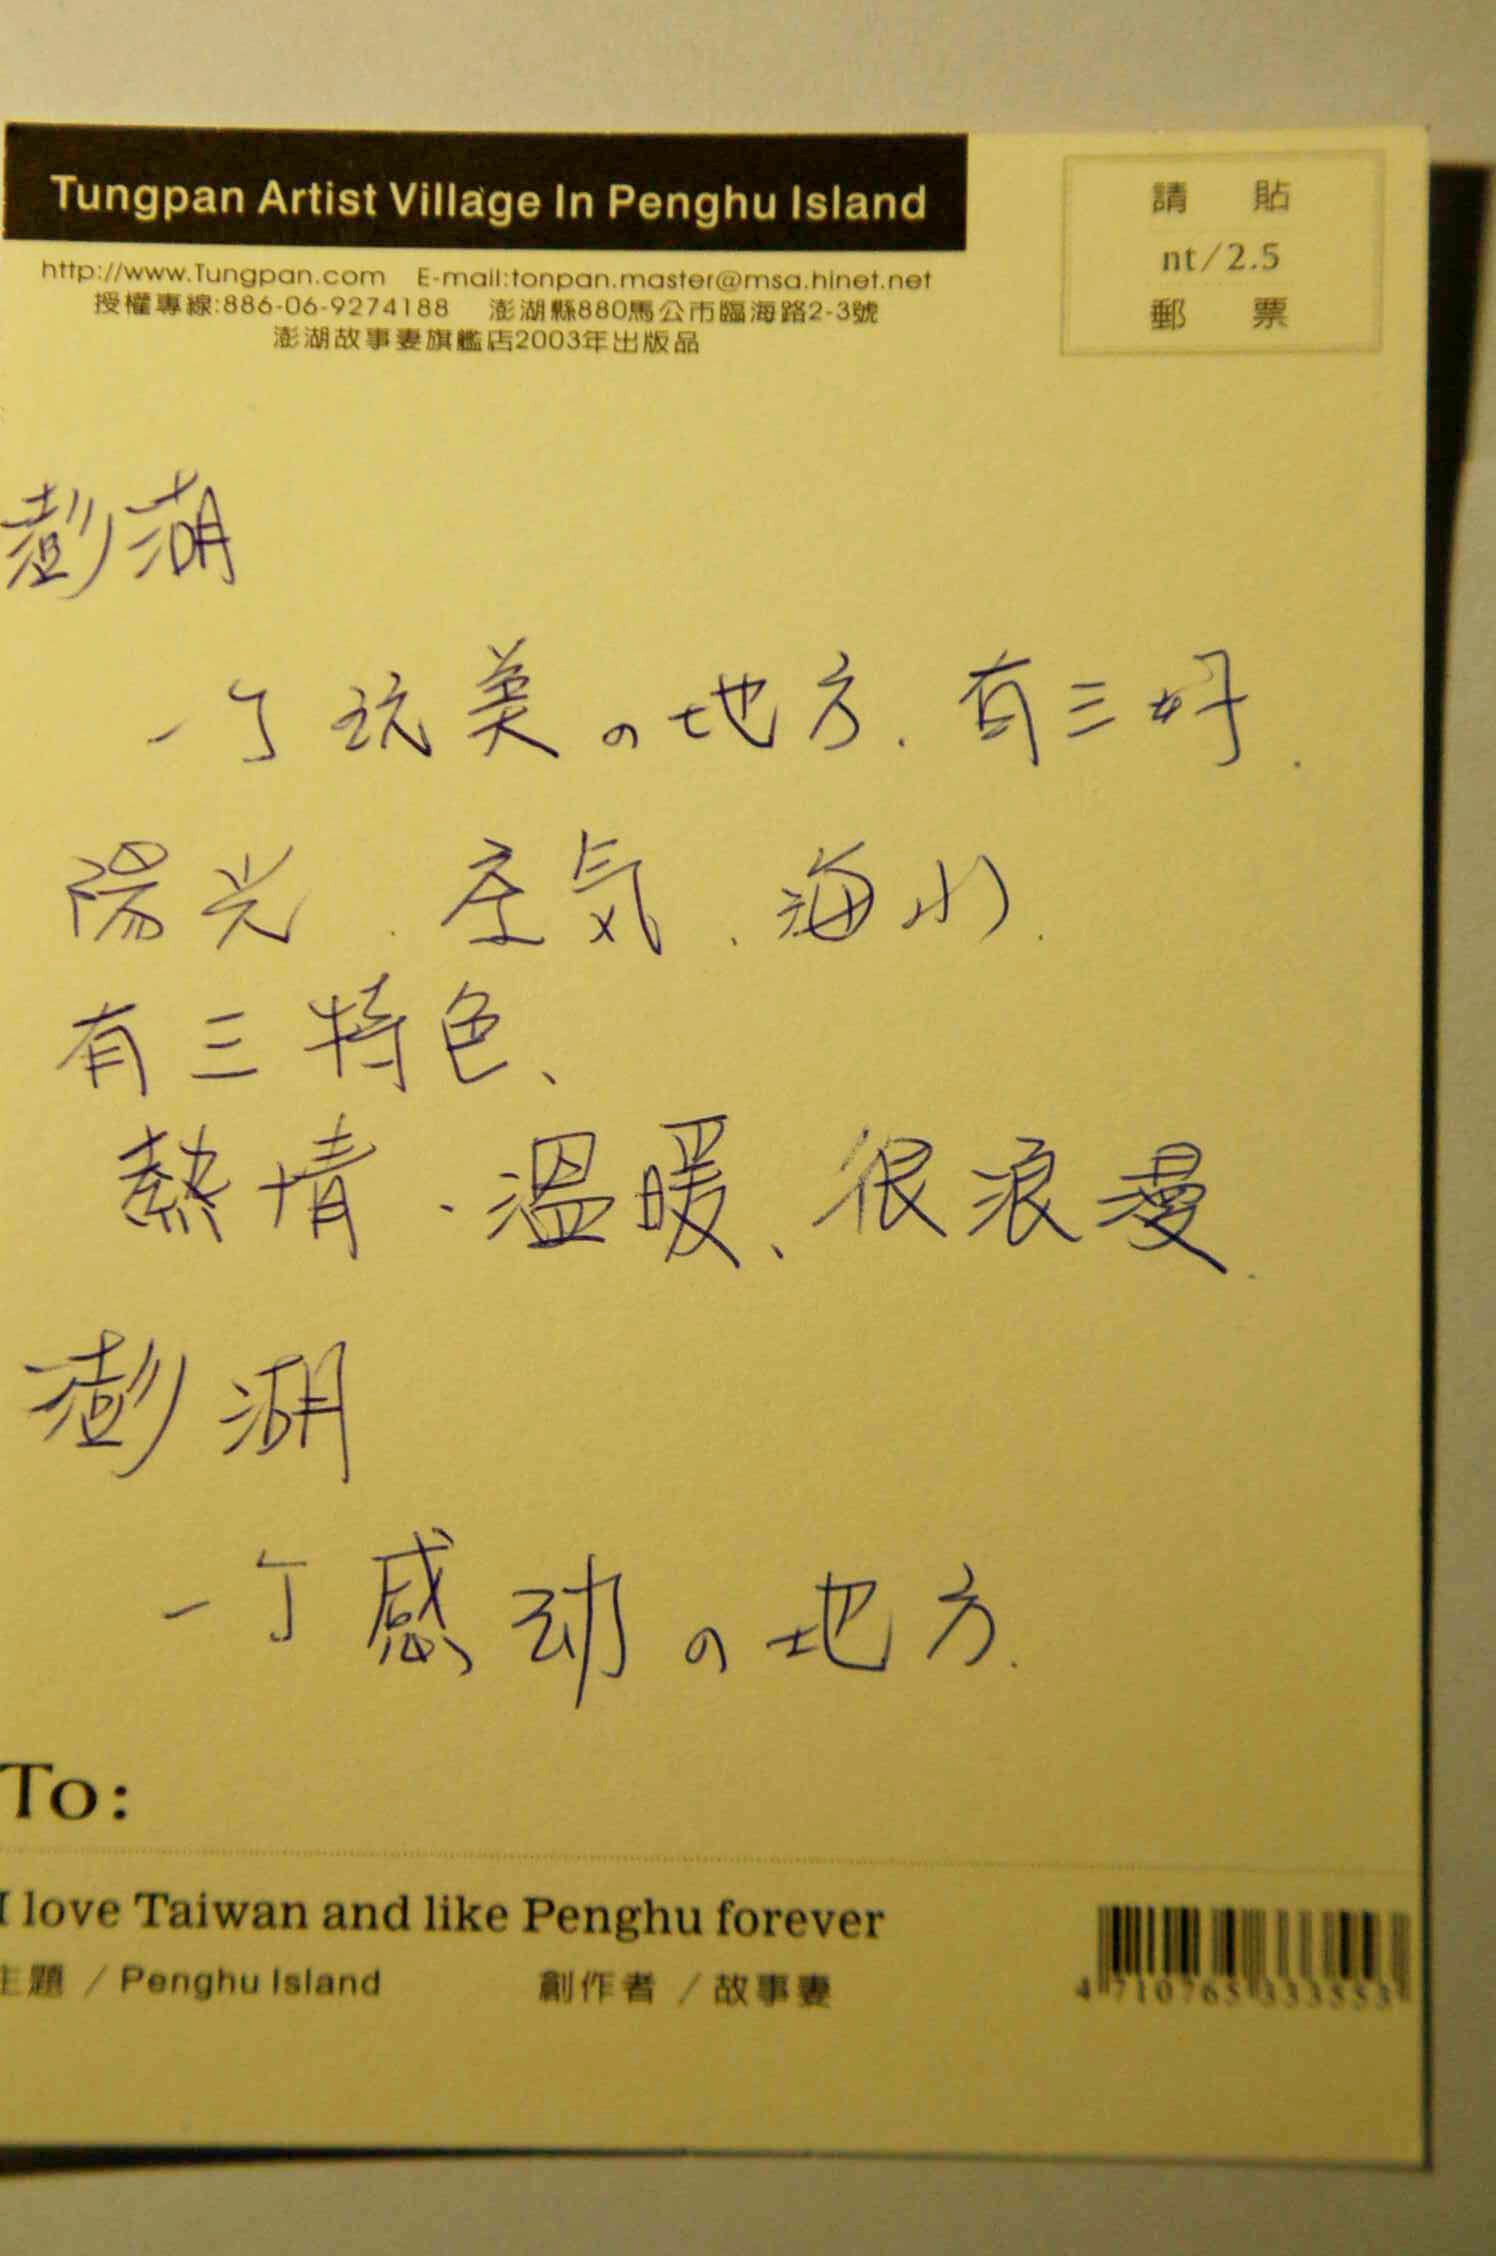 Tungpan Artist Village In Penghu Island
請 貼
nt/2.5
郵 票
http://www.Tungpan.com E-mail:tonpan.master@msa.hinet.net
授權專線:886-06-9274188 澎湖縣880馬公市臨海路2-3號
澎湖故事妻旗艦店2003年出版品
澎湖
一个玩美の地方、有三好.
陽光、空気、海水.
有三特色、
熱情、溫暖、很浪漫.
澎湖
一个感动の地方.
To:
I love Taiwan and like Penghu forever
主題 / Penghu Island 創作者 / 故事妻
4 710765 333553